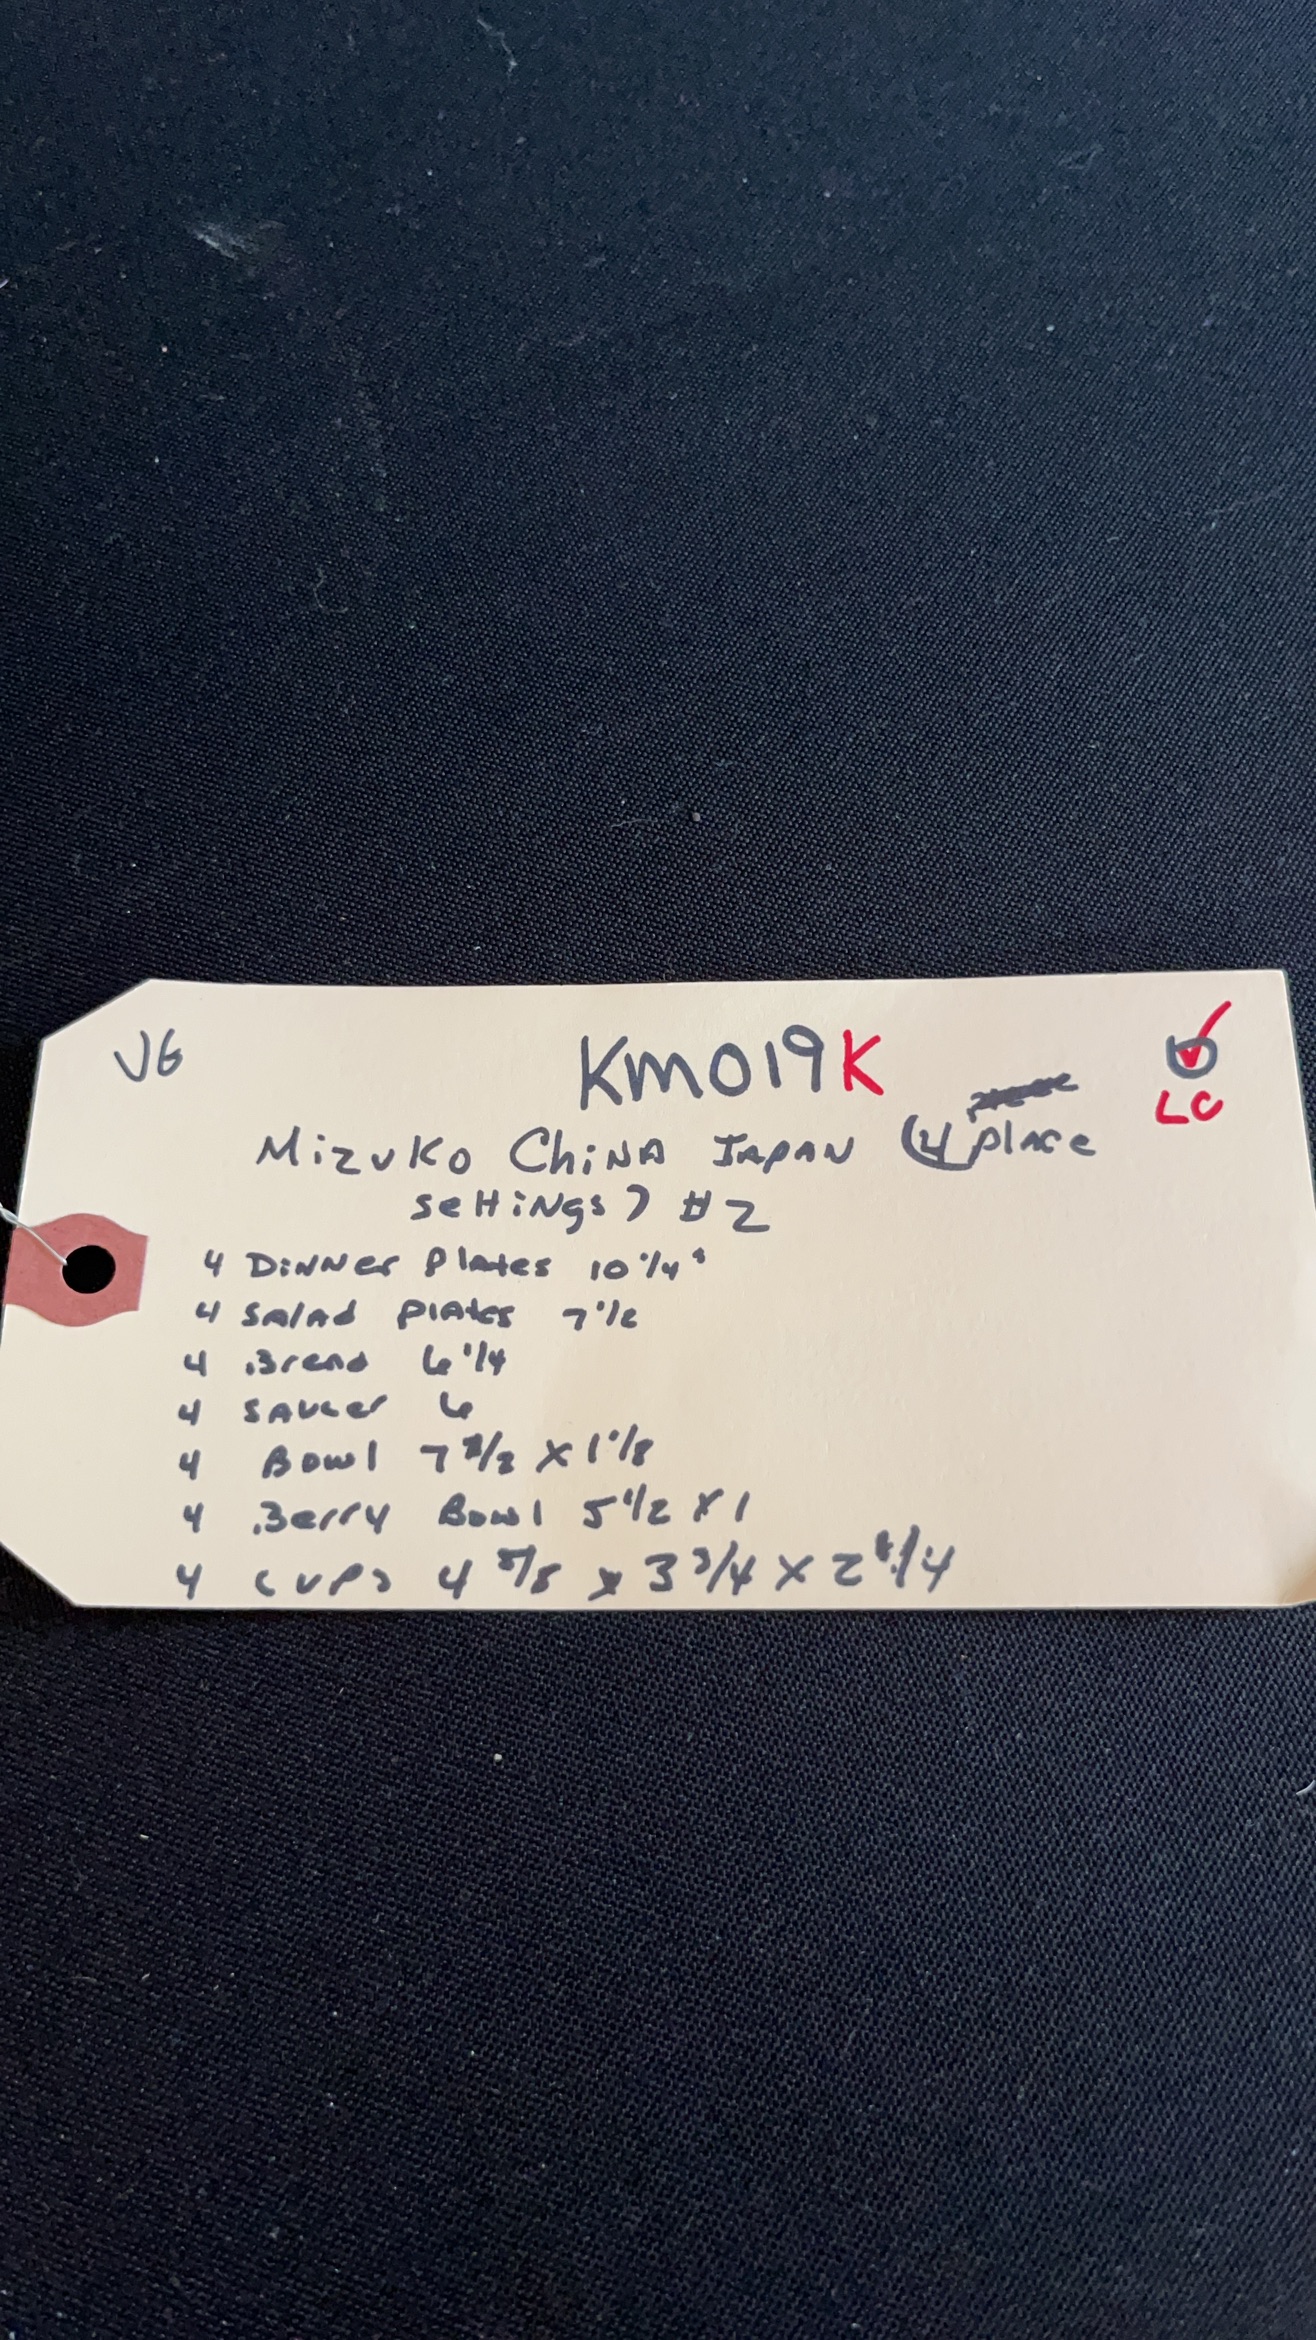 VG
KM019K
LC
Mizuko China Japan (4 place
settings) #2
4 Dinner Plates 10 1/4"
4 Salad Plates 7 1/2
4 Bread 6 1/4
4 Saucer 6
4 Bowl 7 x 1 1/8
4 Berry Bowl 5 1/2 x 1
4 Cups 4 5/8 x 3 3/4 x 2 /4